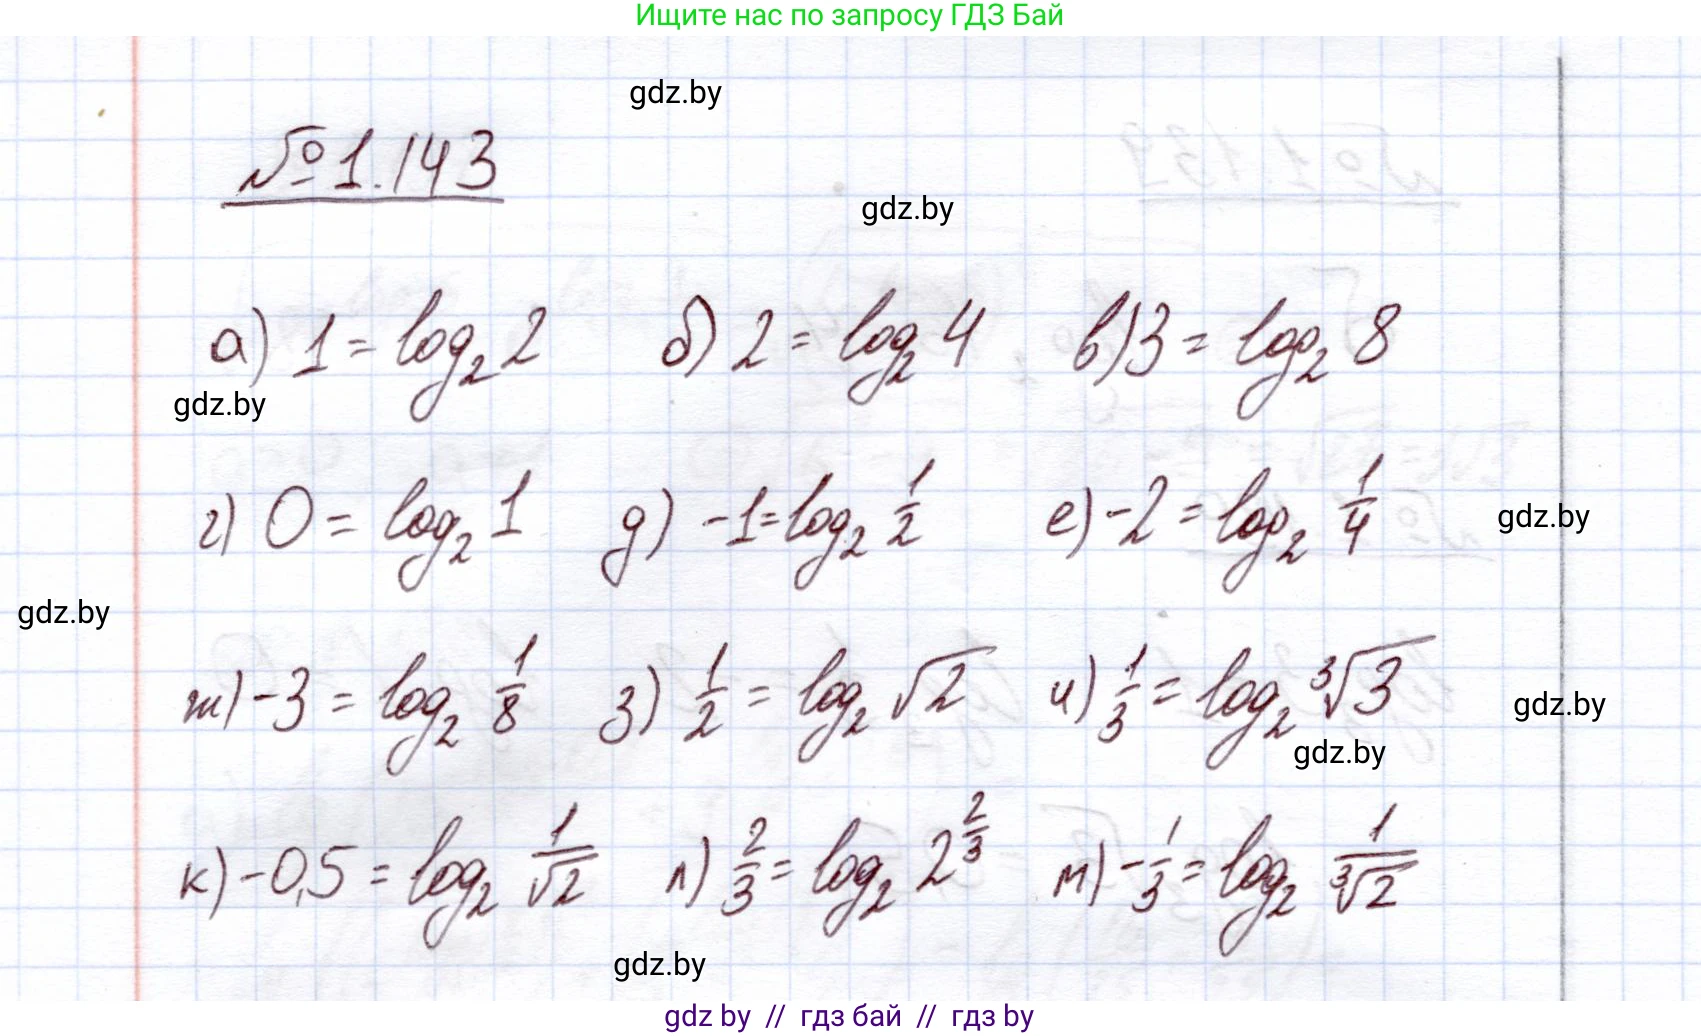 Ищите нас по запросу ГДЗ Бай
gdz.by
№1.143
gdz.by
а) 1 = log₂ 2 б) 2 = log₂ 4 в) 3 = log₂ 8
gdz.by
г) 0 = log₂ 1 д) -1 = log₂ 1/2 е) -2 = log₂ 1/4
gdz.by
gdz.by
ж) -3 = log₂ 1/8 з) 1/2 = log₂ √2 и) 1/3 = log₂ ³√3
gdz.by
gdz.by
к) -0,5 = log₂ 1/√2 л) 2/3 = log₂ 2^(2/3) м) -1/3 = log₂ 1/³√2
gdz.by
gdz by // гдз бай // гдз by